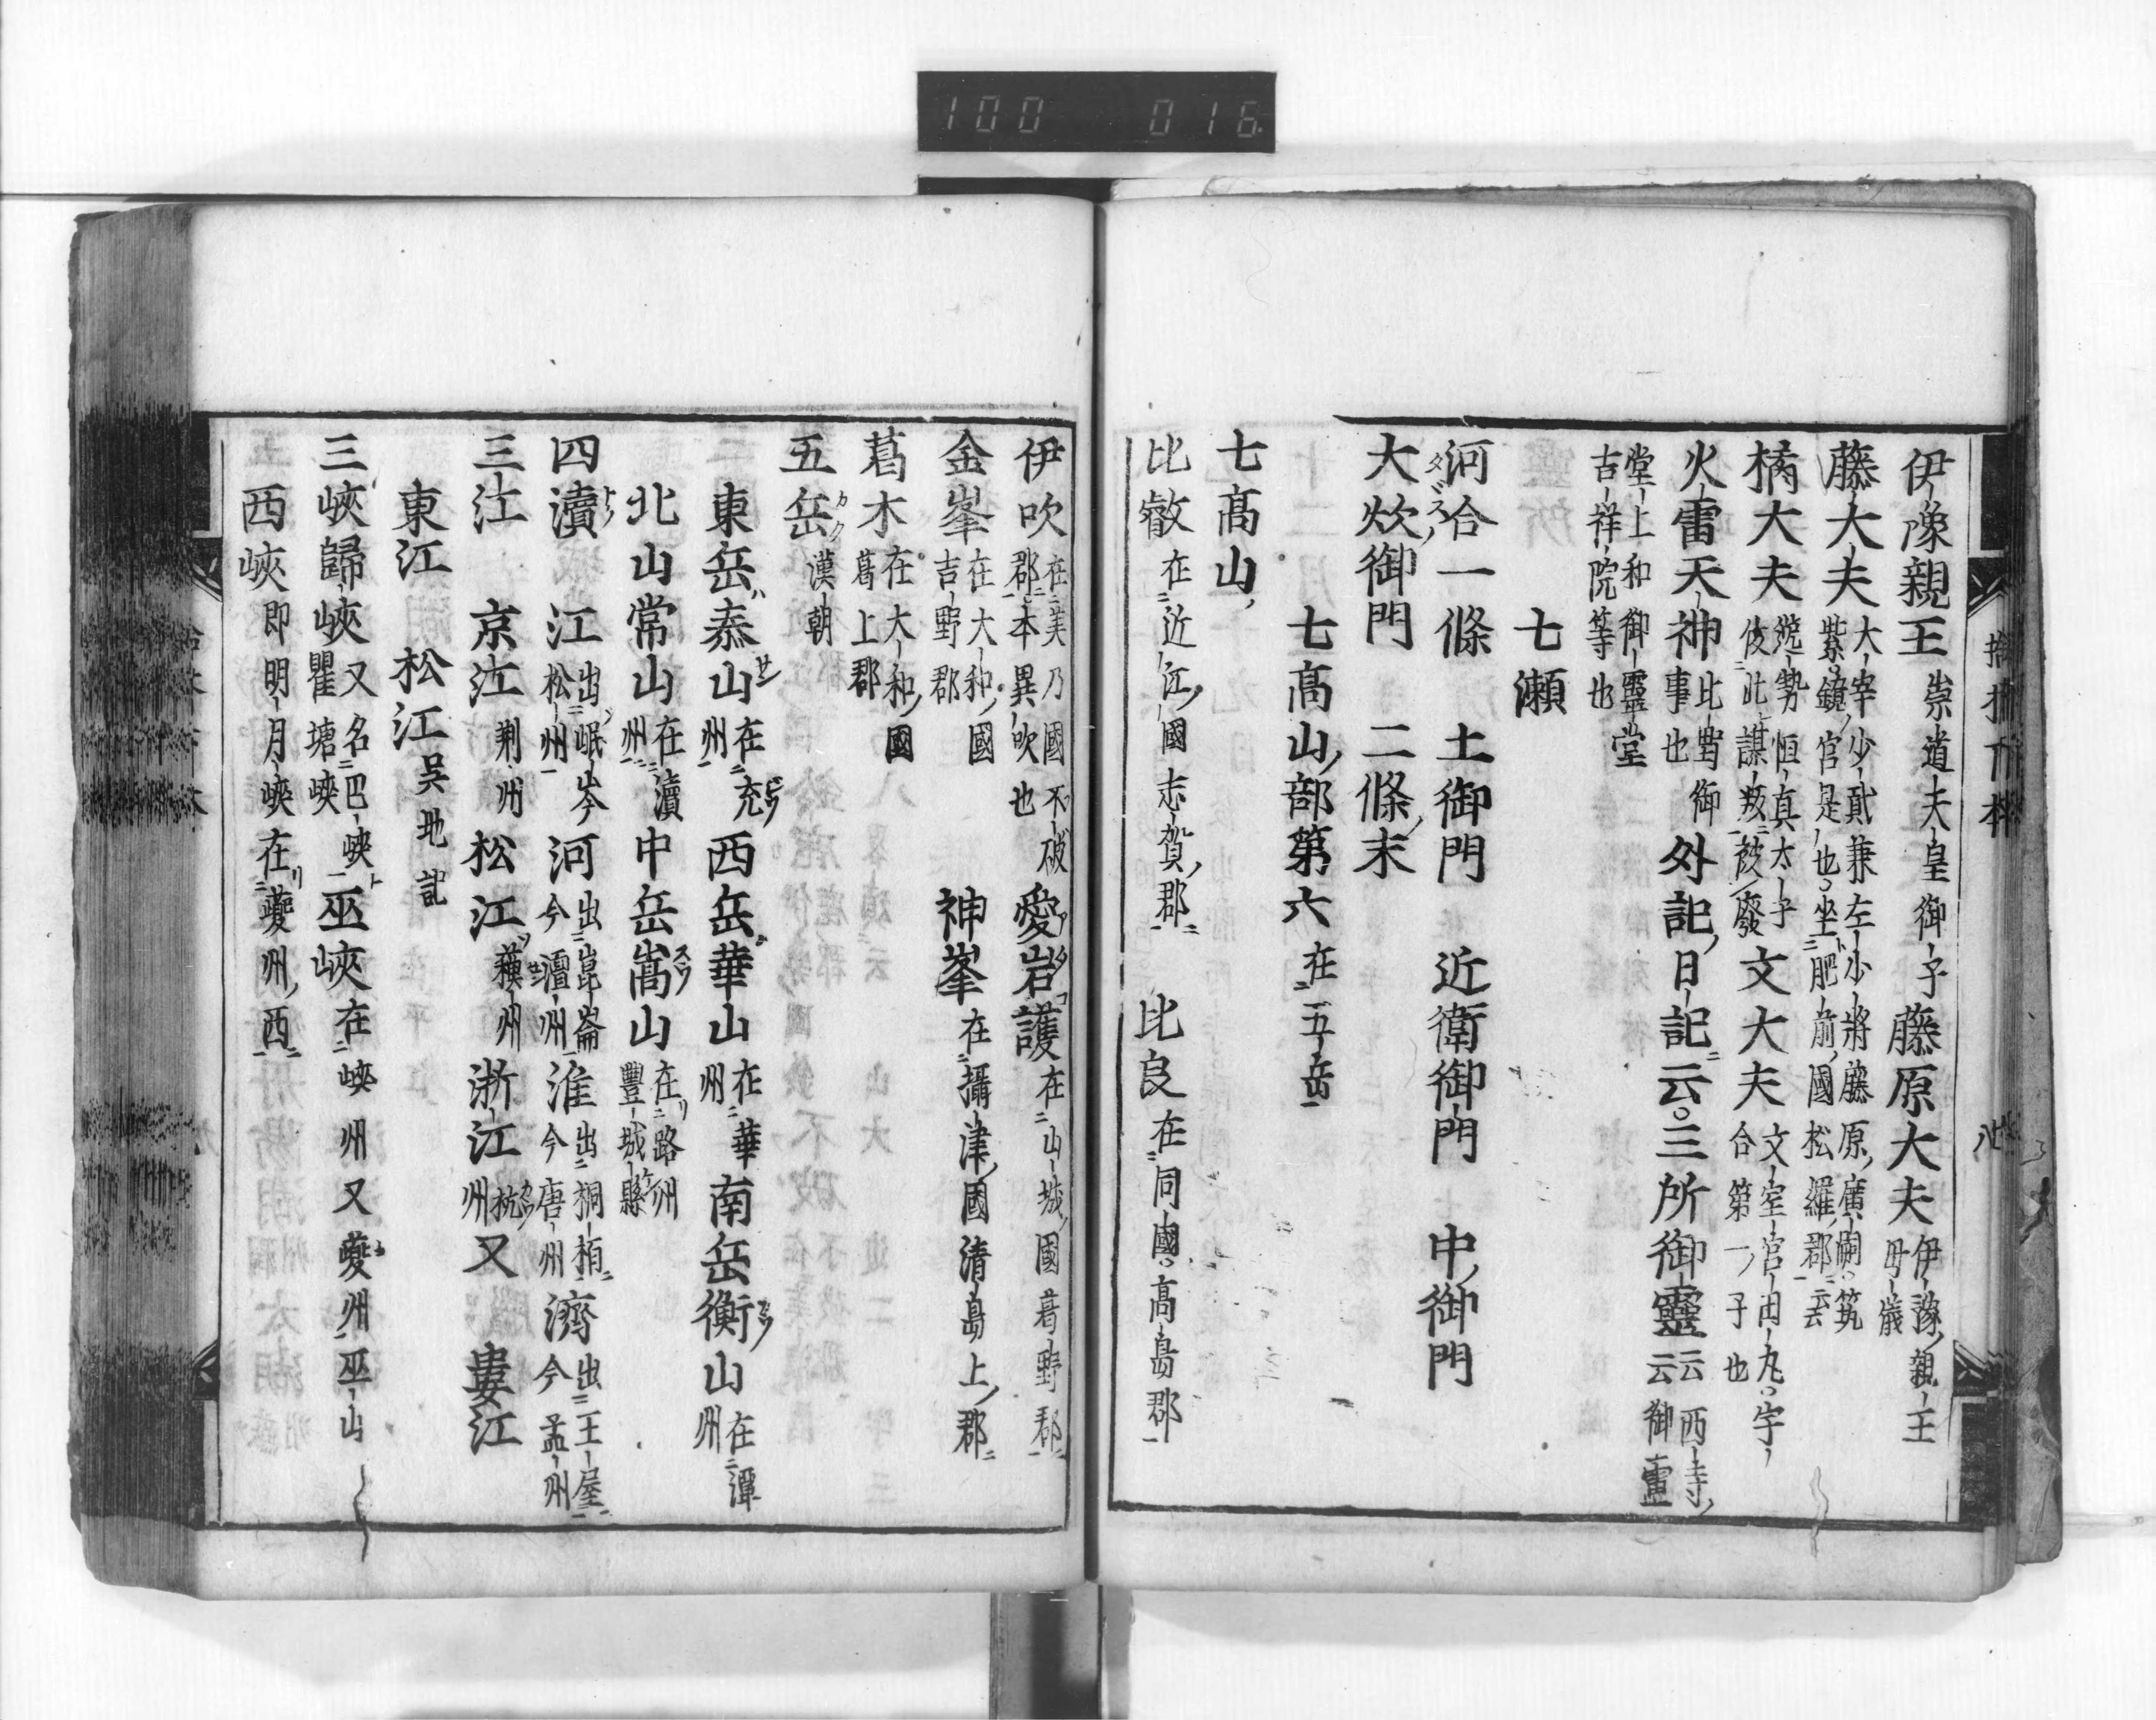 100 016
伊豫親王 崇道天皇御子 藤原大夫 伊豫親王
母儀
藤大夫 大宰少貳兼左少將藤原廣嗣筑
紫鏡官是也坐肥前國松羅郡云云
橘大夫 逸勢恒貞太子
依此謀叛被廢 文大夫 文室官田丸字
合第一子也
火雷天神 此輿御
事也 外記日記云三所御靈云 西寺
云御靈
堂上和御靈堂
吉祥院等也
七瀬
河合一條 土御門 近衛御門 中御門
大炊御門 二條末
七髙山部第六 在五岳
七髙山
比叡 在近江國志賀郡 比良 在同國高島郡
伊吹 在美乃國不破
郡本異吹也 愛岩護 在山城國葛野郡
金峯 在大和國
吉野郡 神峯 在攝津國清島上郡
葛木 在大和國
葛上郡
五岳 漢朝
東岳泰山 在兖
州 西岳華山 在華
州 南岳衡山 在潭
州
北山常山 在瀆
州 中岳嵩山 在路州
豐城縣
四瀆 江 出岷岑
松州 河 出崑崙
今澶州 淮 出桐栢
今唐州 濟 出王屋
今孟州
三江 京江 荆州 松江 蘓州 浙江 杭
州 又 婁江
東江 松江 吳地記
三峽 歸峽 又名巴峽
瞿塘峽 巫峽 在峽州又夔州巫山
西峽 即明月峽在夔州西